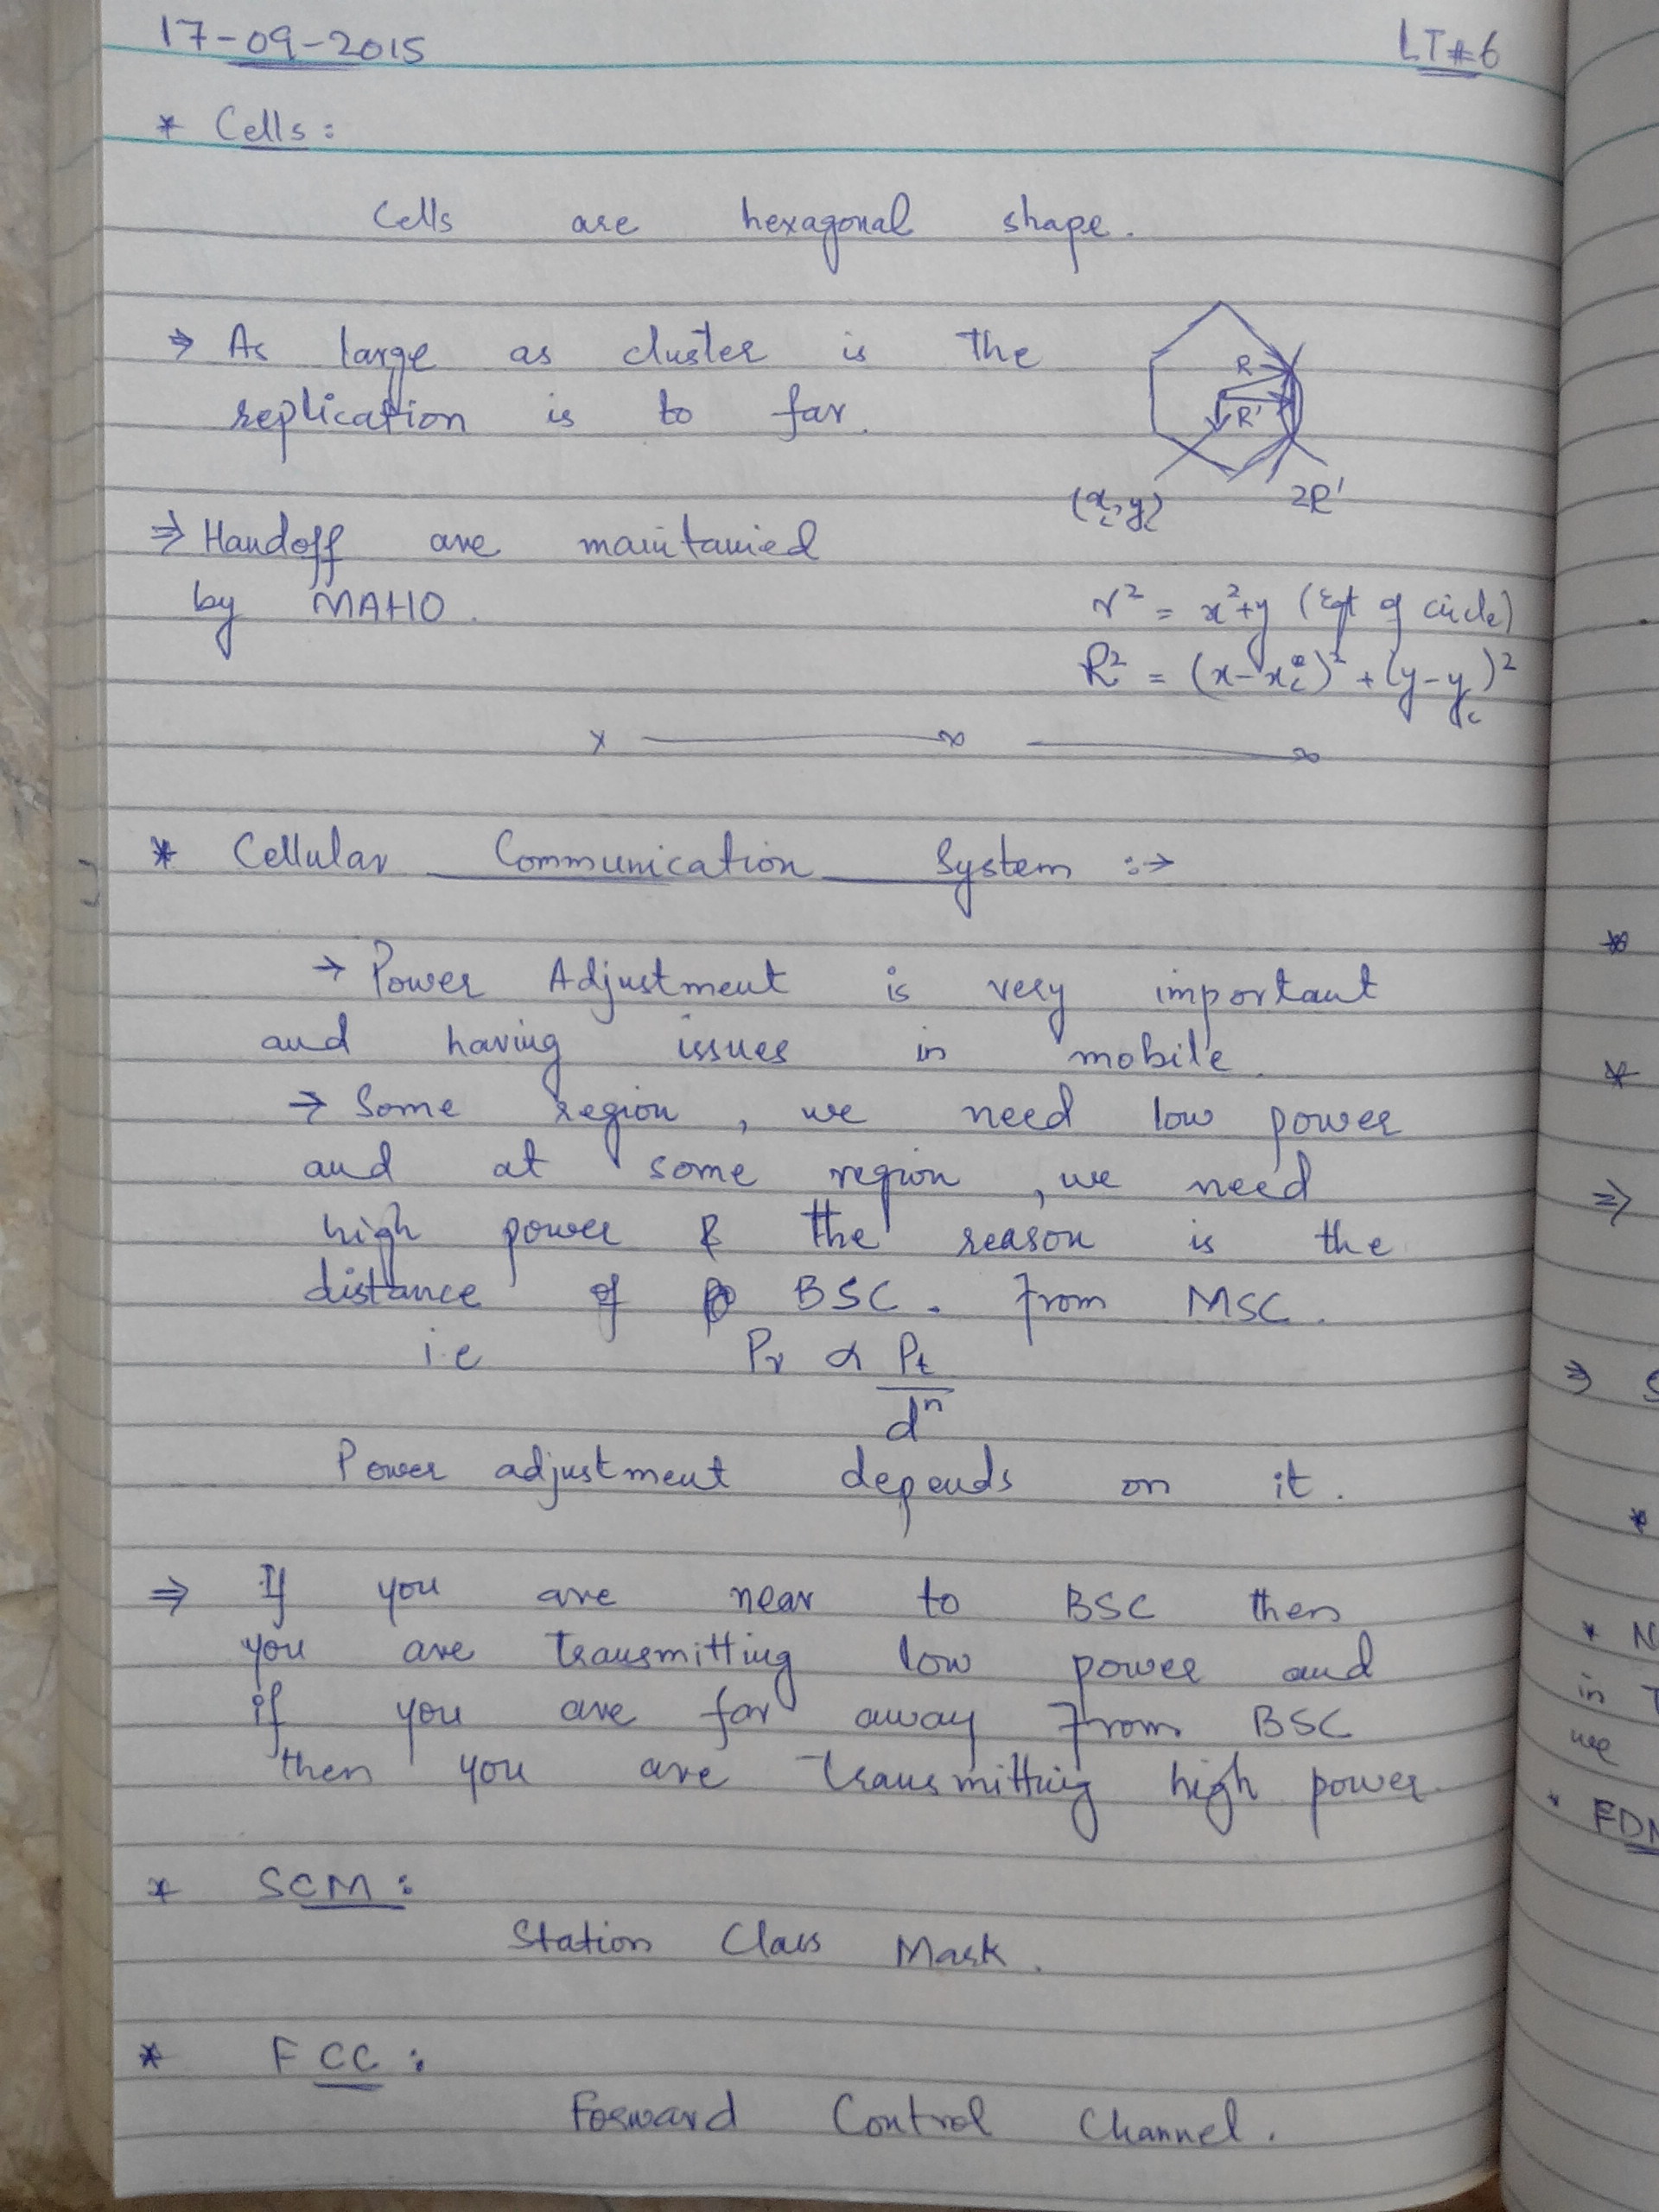 17-09-2015 LT#6
* Cells:
Cells are hexagonal shape.
⇒ As large as cluster is the
replication is to far.
R
R'
(xᵢ, yᵢ) 2R'
⇒ Handoff are maintanied
by MAHO.
r² = x²+y (Eqt of circle)
R² = (x-xᵢ)² + (y-yᵢ)²
* Cellular Communication System :→
→ Power Adjustment is very important
and having issues in mobile.
→ Some region, we need low power
and at some region, we need
high power & the reason is the
distance of BSC. from MSC.
i.e Pr α Pt
dⁿ
Power adjustment depends on it.
⇒ If you are near to BSC then
you are transmitting low power and
if you are far away from BSC
then you are transmitting high power.
* SCM:
Station Class Mark.
* FCC:
Forward Control Channel.
*
*
⇒
⇒ S
*
* N
in T
we
* FDM